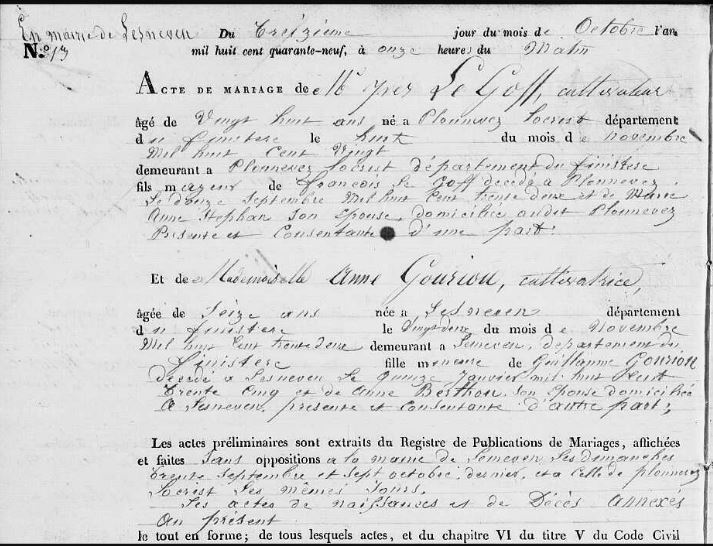 En mairie de Lesneven
N.º 13
Du treizième jour du mois de Octobre l'an
mil huit cent quarante-neuf, à onze heures du Matin
ACTE DE MARIAGE de Mr Yves Le Goff, cultivateur
âgé de Vingt huit ans né a Plonnevez Locrist département
du finistere le huit du mois de novembre
Mil huit Cent Vingt
demeurant a Plonnevez Locrist département du finistère
fils majeur de francois Le Goff décédé à Plonnevez
Le douze Septembre Mil huit Cent trente deux et de Marie
Anne Stephan Son Epouse domiciliée audit Plonnevez
Présente et Consentante d'une part.
Et de Mademoiselle Anne Gouriou, cultivatrice,
âgée de Seize ans née a Lesneven département
du finistere le Vingt deux du mois de Novembre
Mil huit Cent trente deux demeurant a Lesneven, département du
finistere fille mineure de Guillaume Gouriou
décédé a Lesneven Le quinze Janvier mil huit Cent
trente Cinq et de Anne Berthou Son Epouse domiciliée
a Lesneven, présente et Consentante d'autre part;
Les actes préliminaires sont extraits du Registre de Publications de Mariages, affichées
et faites Sans oppositions a la mairie de Lesneven, Les dimanches
trente Septembre et Sept octobre, dernier, et a Celle de plonnevez
Locrist Les mêmes Jours.
Les actes de naissances et de Décès annexés
au présent
le tout en forme; de tous lesquels actes, et du chapitre VI du titre V du Code Civil